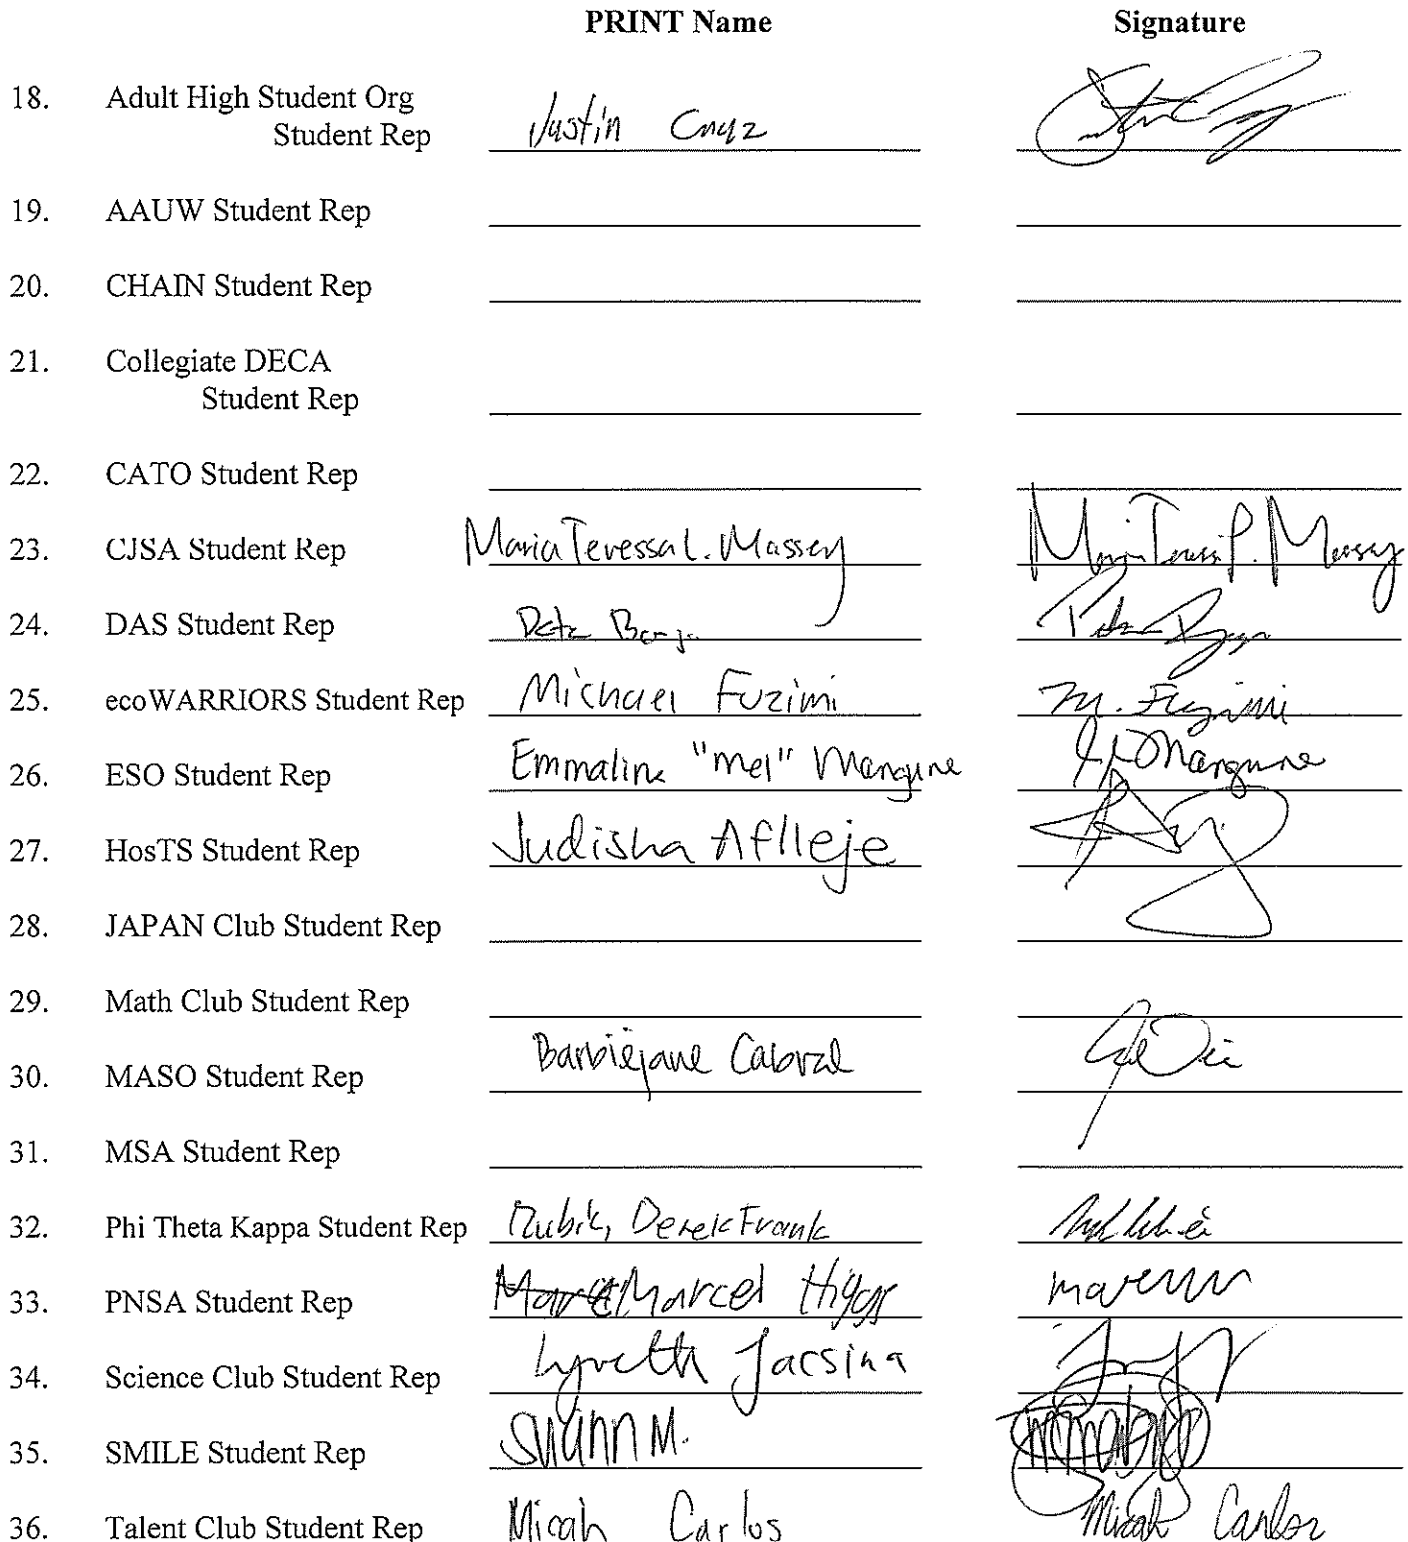 PRINT Name Signature
18. Adult High Student Org
Student Rep Justin Cruz
19. AAUW Student Rep
20. CHAIN Student Rep
21. Collegiate DECA
Student Rep
22. CATO Student Rep
23. CJSA Student Rep Maria Teressa L. Massey
24. DAS Student Rep
25. ecoWARRIORS Student Rep Michael Fuzimi M. Fuzimi
26. ESO Student Rep Emmaline "mel" Mangune Mangune
27. HosTS Student Rep Judisha Aflleje
28. JAPAN Club Student Rep
29. Math Club Student Rep
30. MASO Student Rep Barbiejane Cabral
31. MSA Student Rep
32. Phi Theta Kappa Student Rep Rubik, Derek Frank
33. PNSA Student Rep Marcel Higgs
34. Science Club Student Rep
35. SMILE Student Rep M.
36. Talent Club Student Rep Micah Carlos Micah Carlos